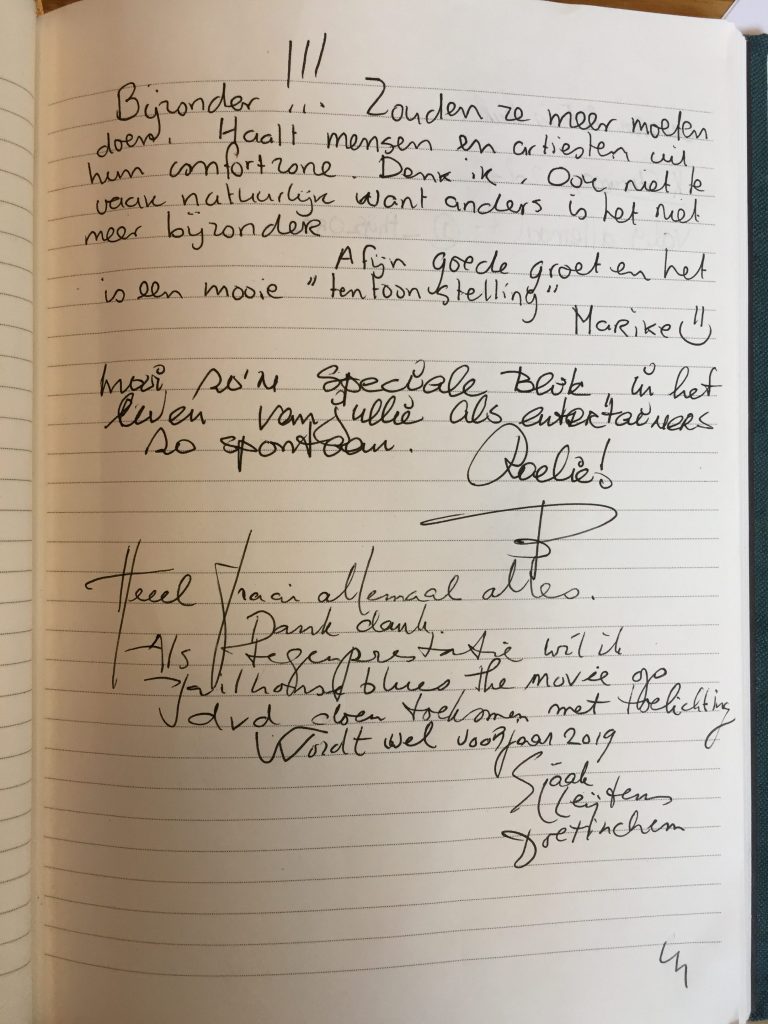 !!!
Bijzonder ... Zouden ze meer moeten
doen. Haalt mensen en artiesten uit
hun comfortzone. Denk ik. Ook niet te
vaak natuurlijk want anders is het niet
meer bijzonder
Afijn goede groet en het
is een mooie "tentoonstelling"
Marike
mooi, zo'n speciale blik in het
leven van jullie als entertainers
zo spontaan.
Roelie!
Heeel fraai allemaal alles.
Dank dank.
Als tegenprestatie wil ik
Jailhouse blues the movie op
dvd doen toekomen met toelichting
Wordt wel voorjaar 2019
Sjaak
Leijtens
Doetinchem